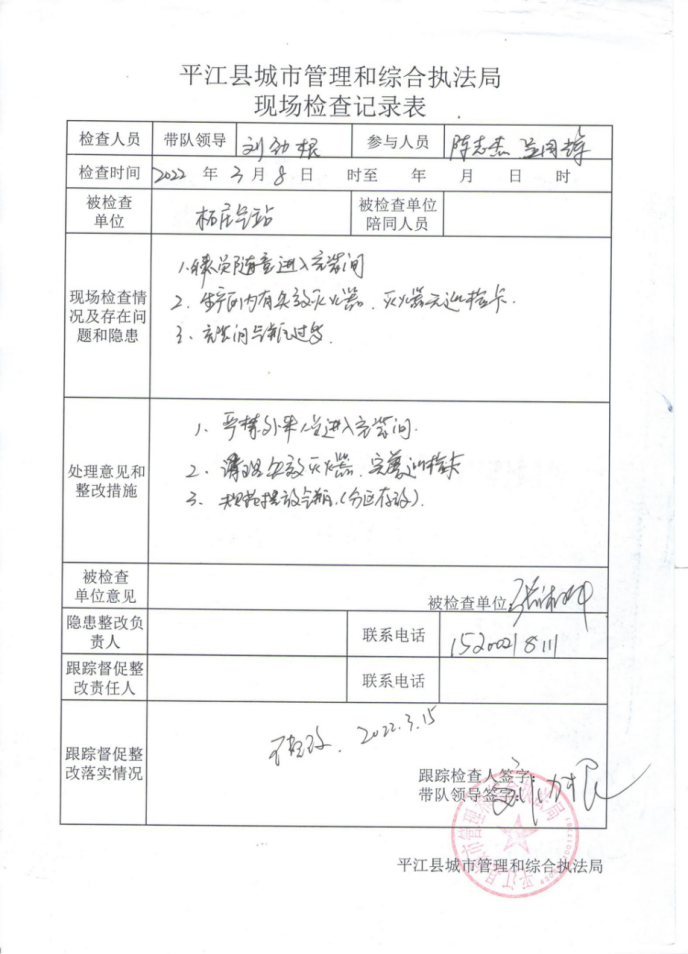 平江县城市管理和综合执法局
现场检查记录表
检查人员 带队领导 刘劲根 参与人员 陈志杰
检查时间 2022 年 3 月 8 日 时至 年 月 日 时
被检查单位 气站 被检查单位陪同人员
现场检查情况及存在问题和隐患
1、 员随意进入充装间
2、生产区内有失效灭火器、灭火器无巡检卡.
3、充装间气瓶过多.
处理意见和整改措施
1、严禁外来人员进入充装间.
2、清理失效灭火器、完善巡检卡
3、规范摆放气瓶.(分区存放).
被检查单位意见
被检查单位
隐患整改负责人 联系电话 15200218111
跟踪督促整改责任人 联系电话
跟踪督促整改落实情况
已整改. 2022.3.15
跟踪检查人签字:
带队领导签字: 刘劲根
平江县城市管理和综合执法局